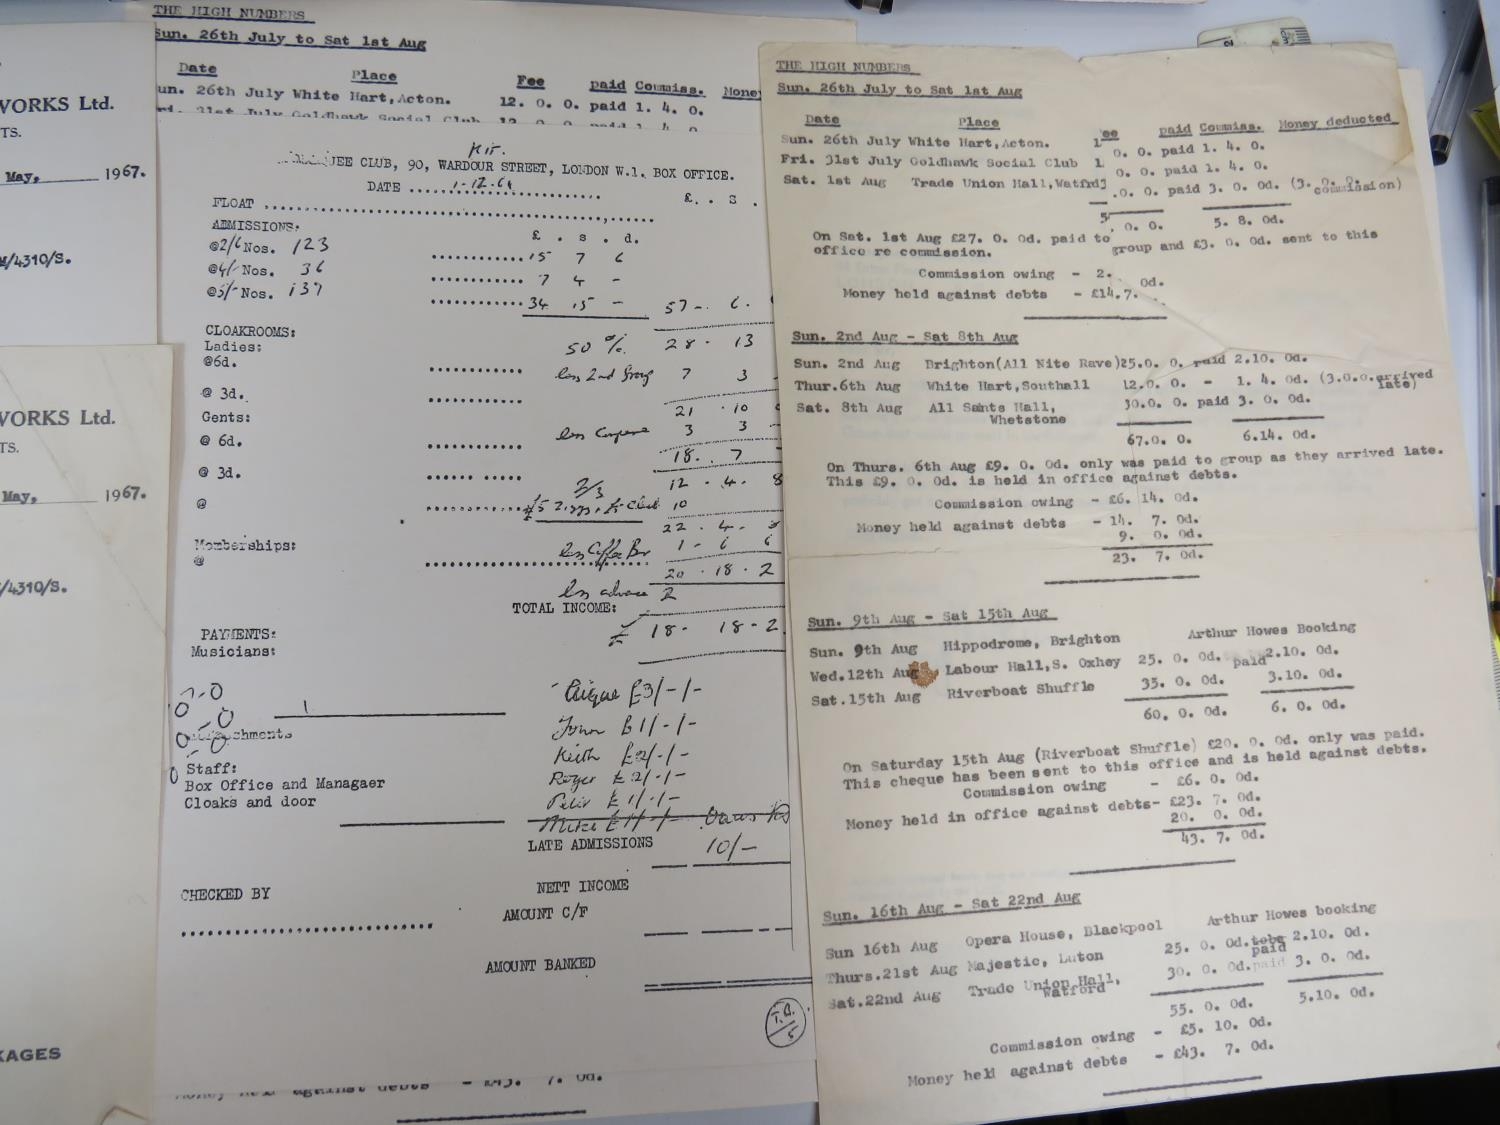 VORKS Ltd.
TS.
May, 1967.
4310/S.
ORKS Ltd.
TS.
May, 1967.
/4310/S.
KAGES
THE HIGH NUMBERS
Sun. 26th July to Sat 1st Aug
Date Place Fee paid Commiss. Money
un. 26th July White Hart,Acton. 12. 0. 0. paid 1. 4. 0.
31st July Goldhawk Social Club
Kit.
EE CLUB, 90, WARDOUR STREET, LONDON W.1. BOX OFFICE.
DATE 1.12.64
FLOAT £. . S .
ADMISSIONS: £ . s . d.
@2/6 Nos. 123 15 7 6
@4/- Nos. 36 7 4 -
@5/- Nos. 139 34 15 - 57 - 6.
CLOAKROOMS:
Ladies: 50 %. 28 . 13
@6d. less 2nd group 7 3
@ 3d. 21 . 10
Gents:
@ 6d. less 3 3
18. 7
@ 3d. 2/3 12 . 4 . 8
@ 10
22 . 4 .
Memberships: less Coffee Bar 1 - 6 6
@
20 . 18 . 2
less advance 2
TOTAL INCOME:
£ 18 - 18 - 2
PAYMENTS:
Musicians:
£3/-/-
John £1/-/-
Keith £2/-/-
Roger £2/-/-
£1/-/-
Mike £1/-/-
Staff:
Box Office and Managaer
Cloaks and door
LATE ADMISSIONS 10/-
NETT INCOME
CHECKED BY
AMOUNT C/F
AMOUNT BANKED
Money held against debts - £43. 7. 0d.
THE HIGH NUMBERS
Sun. 26th July to Sat 1st Aug
Date Place ee paid Commiss. Money deducted
Sun. 26th July White Hart,Acton. 1 0. 0. paid 1. 4. 0.
Fri. 31st July Goldhawk Social Club 1 0. 0. paid 1. 4. 0.
Sat. 1st Aug Trade Union Hall,Watfrd .0. 0. paid 3. 0. 0d. (3. 0. 0. commission)
5 . 0. 0. 5. 8. 0d.
On Sat. 1st Aug £27. 0. 0d. paid to group and £3. 0. 0d. sent to this
office re commission.
Commission owing - 2. 0d.
Money held against debts - £14.7.
Sun. 2nd Aug - Sat 8th Aug
Sun. 2nd Aug Brighton(All Nite Rave)25.0. 0. paid 2.10. 0d.
Thur.6th Aug White Hart,Southall 12.0. 0. - 1. 4. 0d. (3.0.0.arrived late)
Sat. 8th Aug All Sants Hall, 30.0. 0. paid 3. 0. 0d.
Whetstone
67.0. 0. 6.14. 0d.
On Thurs. 6th Aug £9. 0. 0d. only was paid to group as they arrived late.
This £9. 0. 0d. is held in office against debts.
Commission owing - £6. 14. 0d.
Money held against debts - 14. 7. 0d.
9. 0. 0d.
23. 7. 0d.
Sun. 9th Aug - Sat 15th Aug
Sun. 9th Aug Hippodrome, Brighton Arthur Howes Booking
Wed.12th Aug Labour Hall,S. Oxhey 25. 0. 0d. paid 2.10. 0d.
Sat.15th Aug Riverboat Shuffle 35. 0. 0d. 3.10. 0d.
60. 0. 0d. 6. 0. 0d.
On Saturday 15th Aug (Riverboat Shuffle) £20. 0. 0d. only was paid.
This cheque has been sent to this office and is held against debts.
Commission owing - £6. 0. 0d.
Money held in office against debts- £23. 7. 0d.
20. 0. 0d.
43. 7. 0d.
Sun. 16th Aug - Sat 22nd Aug
Sun 16th Aug Opera House, Blackpool Arthur Howes booking
Thurs.21st Aug Majestic, Luton 25. 0. 0d. paid 2.10. 0d.
Sat.22nd Aug Trade Union Hall, 30. 0. 0d. paid 3. 0. 0d.
Watford
55. 0. 0d. 5.10. 0d.
Commission owing - £5. 10. 0d.
Money held against debts - £43. 7. 0d.